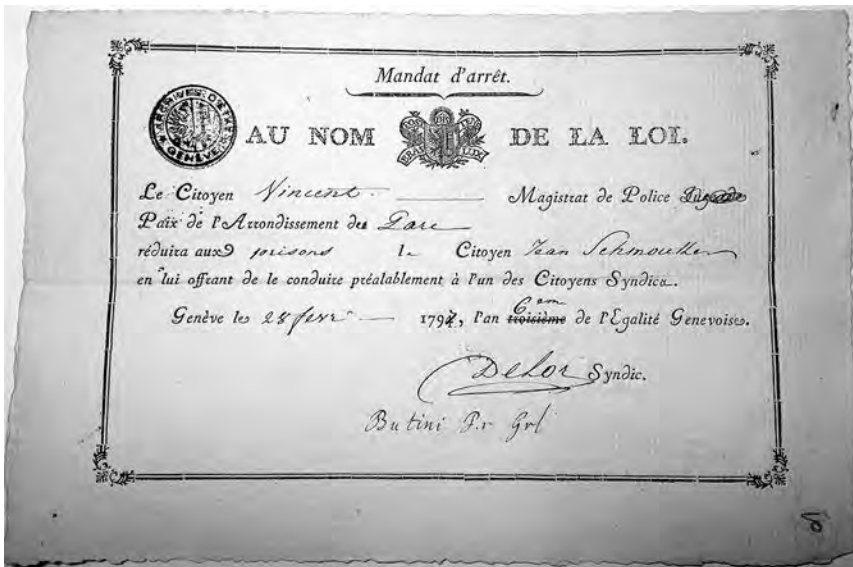 Mandat d'arrêt.
ARCHIVES D'ETAT GENÈVE
AU NOM DE LA LOI.
POST TENEBRAS LUX
Le Citoyen Vincent Magistrat de Police
Paix de l'Arrondissement du Parc
réduira aux prisons le Citoyen Jean Schmoulker
en lui offrant de le conduire préalablement à l'un des Citoyens Syndics.
Genève le 28 fevr 179 , l'an troisième 6em de l'Egalité Genevoise.
DeLor Syndic.
Butini P.r Grl